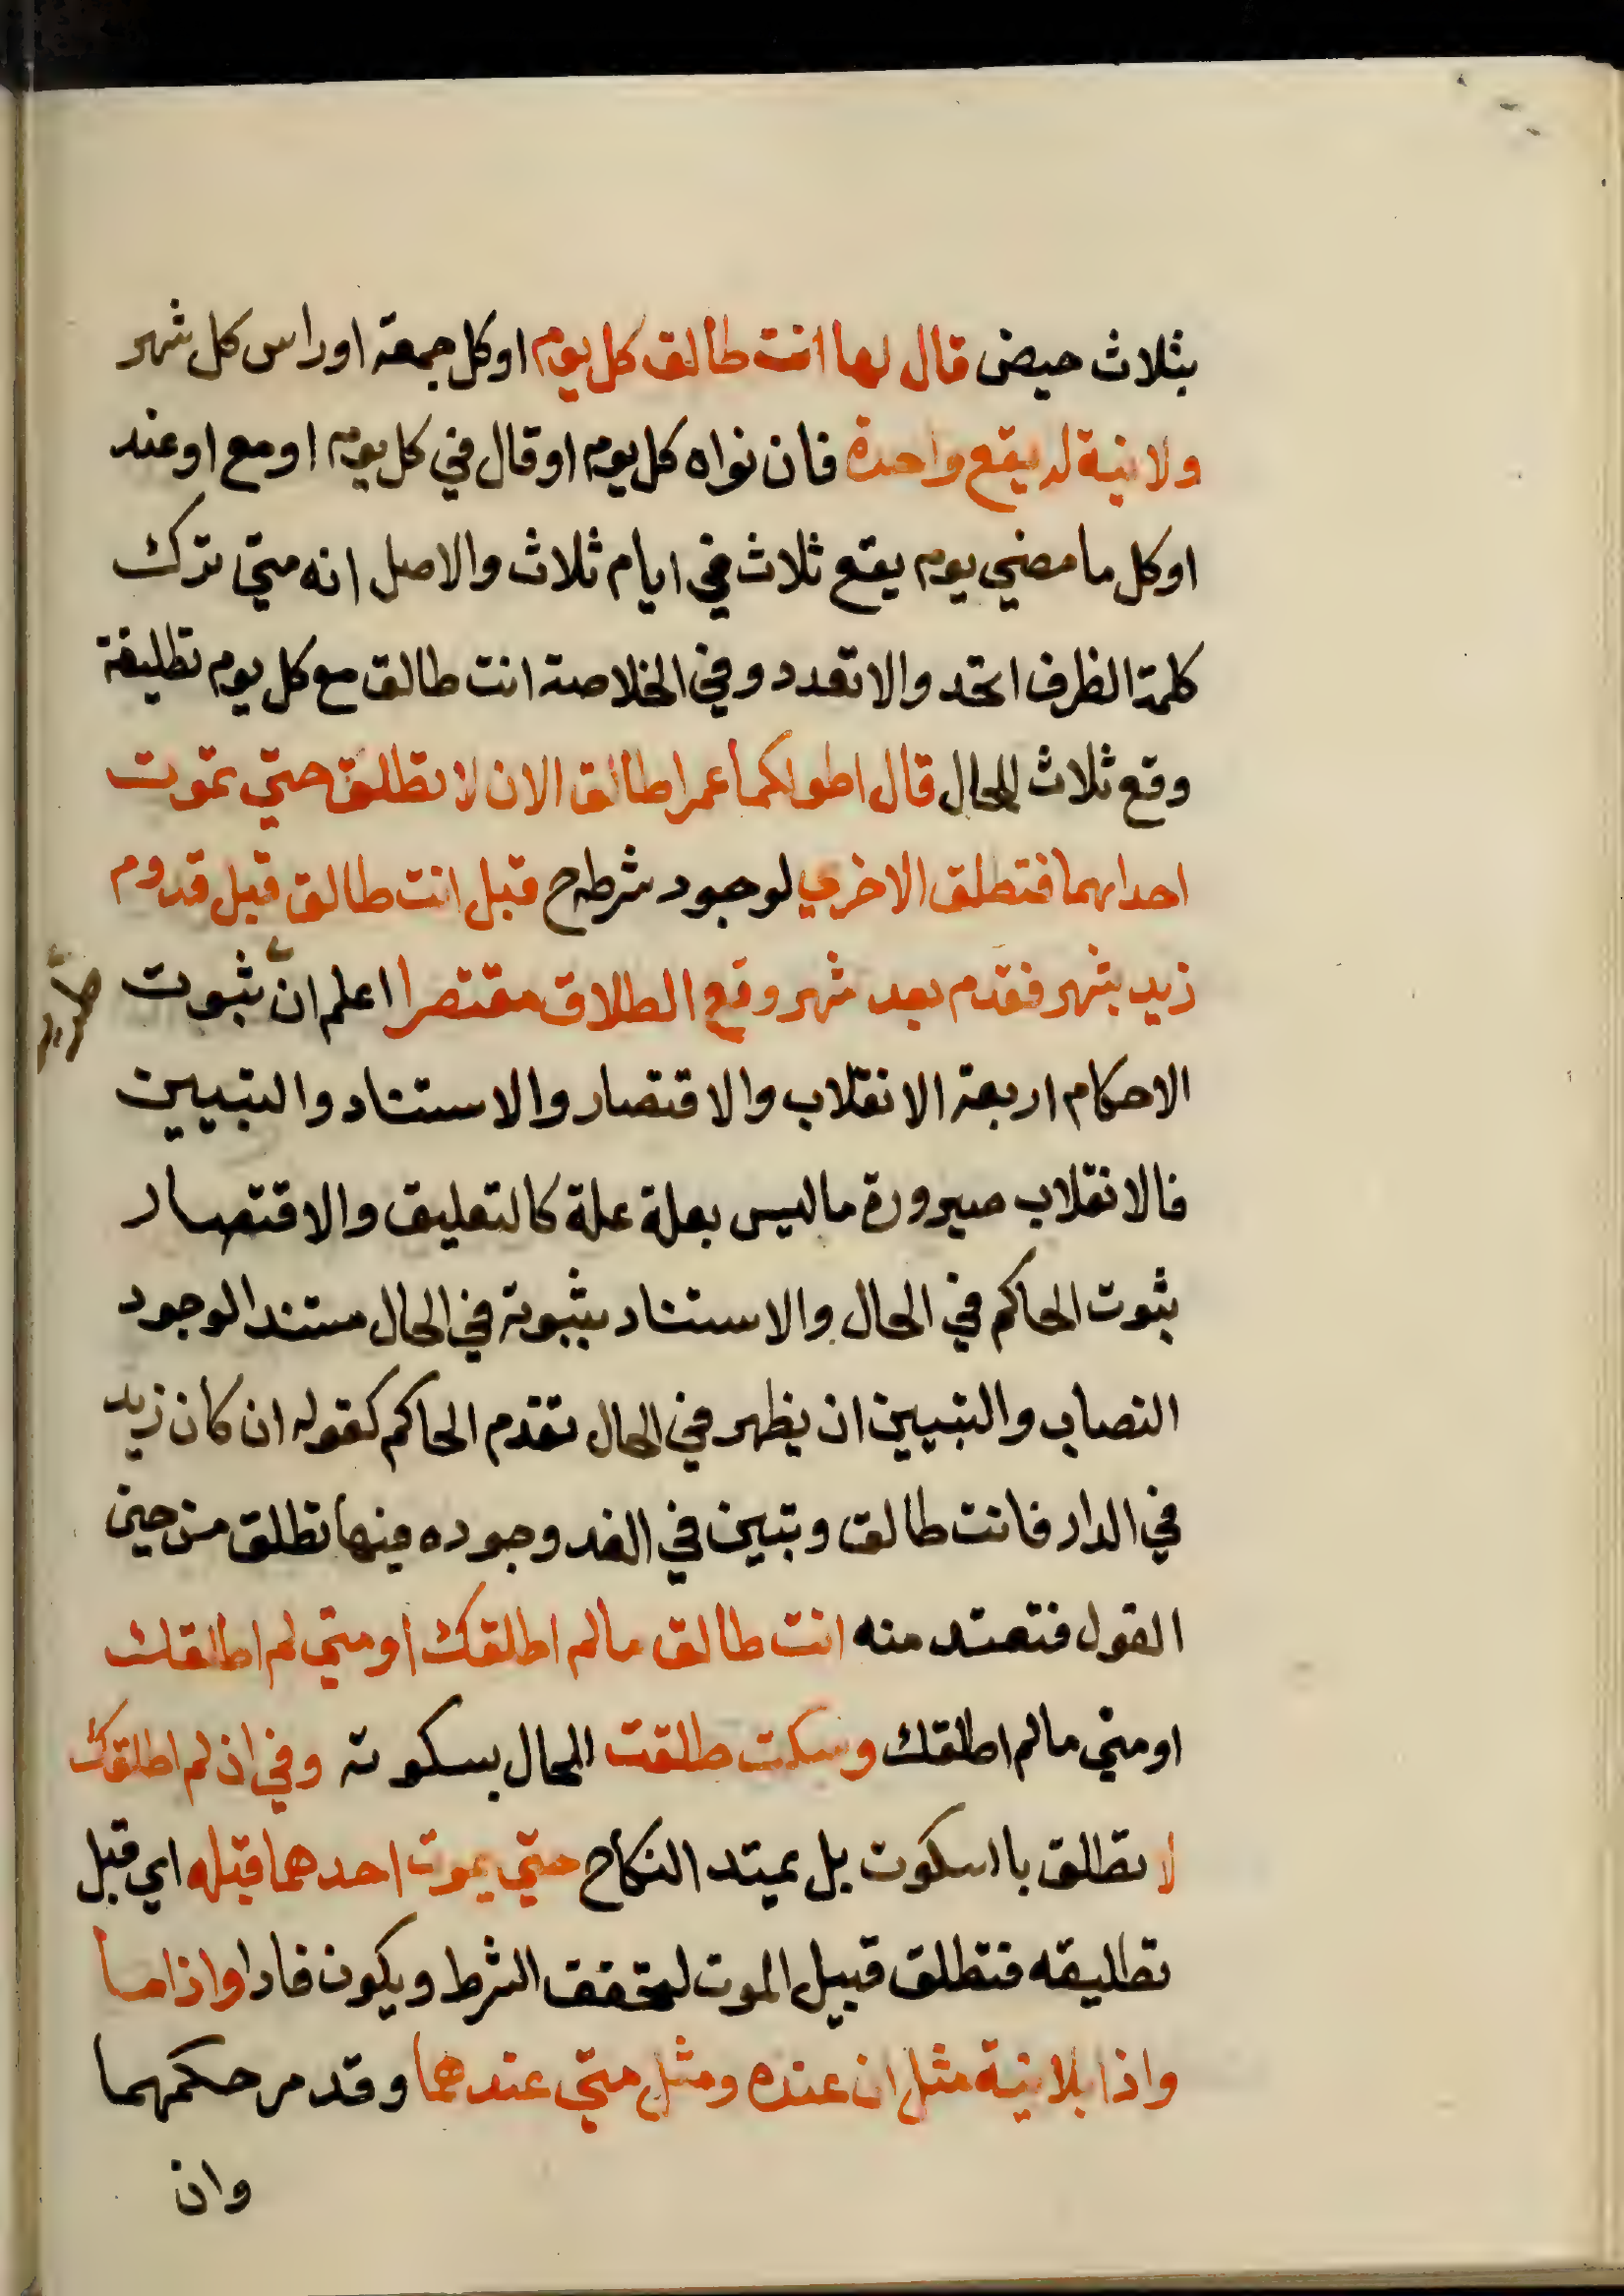 بثلاث حيض قال لها انت طالق كل يوم او كل جمعة او راس كل شهر
ولا نية له يقع واحدة فان نواه كل يوم او قال في كل يوم او مع او عند
او كل ما مضي يوم يقع ثلاث في ايام ثلاث والاصل انه متي ترك
كلمة الظرف اتحد والا تعدد وفي الخلاصة انت طالق مع كل يوم تطليقة
وقع ثلاث للحال قال اطولكما عمرا طالق الان لا تطلق حتي تموت
احداهما فتطلق الاخري لوجود شرطه ح قبل انت طالق قبل قدوم
زيد بشهر فقدم بعد شهر وقع الطلاق مقتصرا اعلم ان ثبوت
الاحكام اربعة الانقلاب والاقتصار والاستناد والتبيين
فالانقلاب صيرورة ما ليس بعلة علة كالتعليق والاقتصار
ثبوت الحاكم في الحال والاستناد ثبوته في الحال مستندا لوجود
النصاب والتبيين ان يظهر في الحال تقدم الحاكم كقوله ان كان زيد
في الدار فانت طالق وتبين في الغد وجوده فيها تطلق من حين
القول فتعتد منه انت طالق ما لم اطلقك او متي لم اطلقك
او متي ما لم اطلقك وسكت طلقت للحال بسكوته وفي اذ لم اطلقك
لا تطلق بااسكوت بل يمتد النكاح حتي يموت احدهما قبله اي قبل
تطليقه فتطلق قبيل الموت لتحقق الشرط ويكون فادا واذا ما
واذا بلا نية مثل ان عنده ومثل متي عندهما وقد مر حكمهما
وان